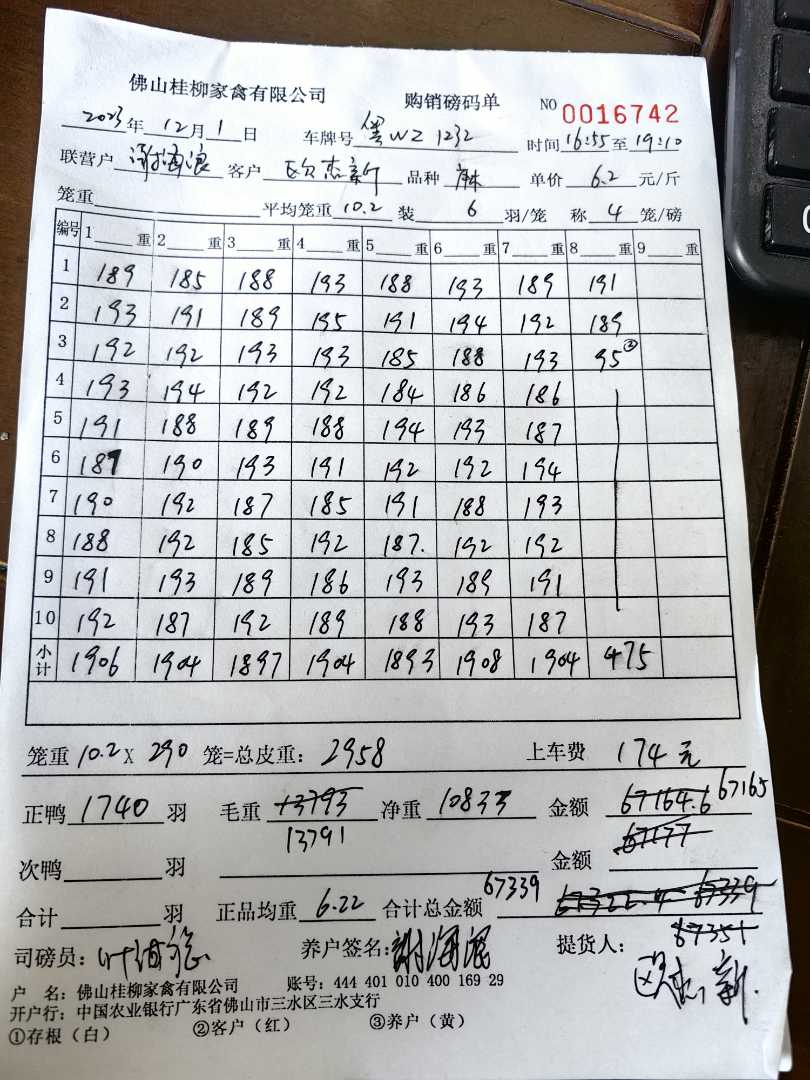 佛山桂柳家禽有限公司 购销磅码单 NO 0016742
2023年12月1日 车牌号 粤WZ1232 时间16:55至19:10
联营户 谢海浪 客户 欧志新 品种 麻 单价 6.2 元/斤
笼重 平均笼重 10.2 装 6 羽/笼 称 4 笼/磅
编号 1 重 2 重 3 重 4 重 5 重 6 重 7 重 8 重 9 重
1 189 185 188 193 188 193 189 191
2 193 191 189 195 191 194 192 189
3 192 192 193 193 185 188 193 95②
4 193 194 192 192 184 186 186
5 191 188 189 188 194 193 187
6 187 190 193 191 192 192 194
7 190 192 187 185 191 188 193
8 188 192 185 192 187. 192 192
9 191 193 189 186 193 189 191
10 192 187 192 189 188 193 187
小计 1906 1904 1897 1904 1893 1908 1904 475
笼重 10.2 X 290 笼=总皮重: 2958 上车费 174元
正鸭 1740 羽 毛重 13793 净重 10833 金额 67164.6 67165
13791 67177
次鸭 羽 金额
合计 羽 正品均重 6.22 合计总金额 67339 67322.4 67339
67351
司磅员: 叶 养户签名: 谢海浪 提货人: 欧志新
户 名: 佛山桂柳家禽有限公司 账号: 444 401 010 400 169 29
开户行: 中国农业银行广东省佛山市三水区三水支行
①存根(白) ②客户(红) ③养户(黄)